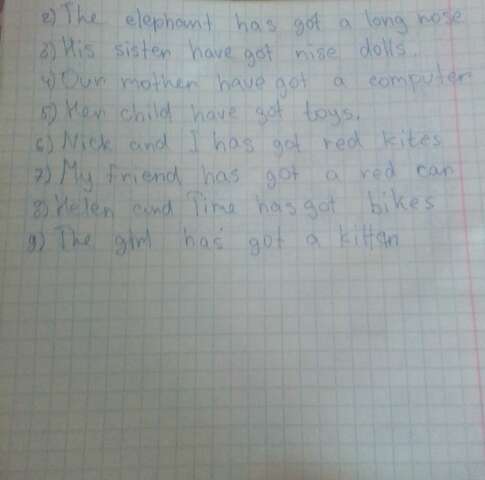 2) The elephant has got a long nose
3) His sister have got nise dolls.
4) Our mother have got a computer
5) Her child have got toys.
6) Nick and I has got red kites
7) My friend has got a red car
8) Helen and Time has got bikes
9) The girl has got a kitten